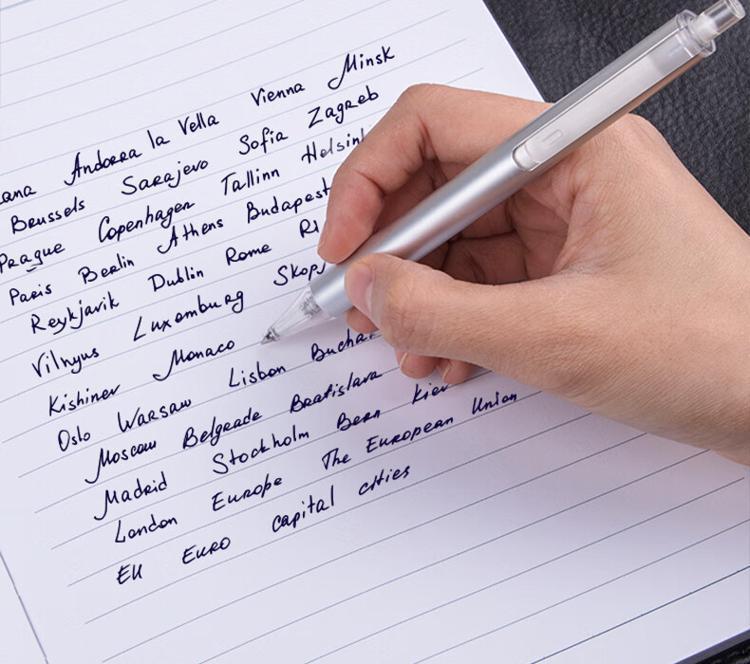 Andorra la Vella Vienna Minsk
Brussels Sarajevo Sofia Zagreb
Prague Copenhagen Tallinn
Paris Berlin Athens Budapest
Reykjavik Dublin Rome
Vilnyus Luxemburg
Kishinev Monaco
Oslo Warsaw Lisbon
Moscow Belgrade Bratislava
Madrid Stockholm Bern Kiev
London Europe The European Union
EU EURO capital cities